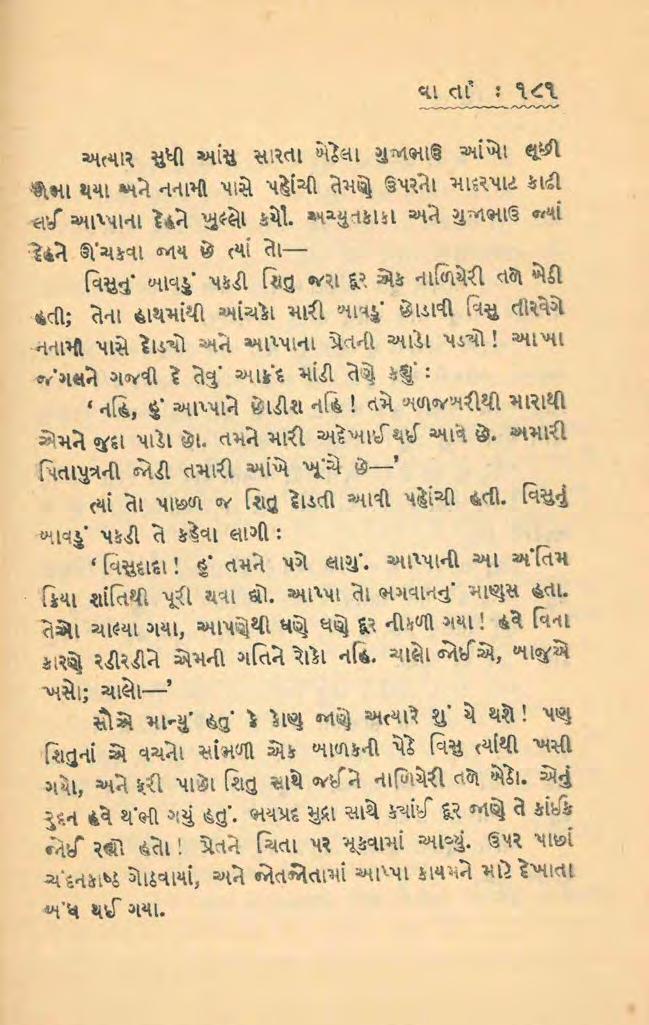 વાર્તા : ૧૮૧
અત્યાર સુધી આંસુ સારતા બેઠેલા ગુજાભાઉ આંખો લૂછી
ઊભા થયા અને નનામી પાસે પહોંચી તેમણે ઉપરનો માદરપાટ કાઢી
લઈ આપ્પાના દેહને ખુલ્લો કર્યો. અચ્યુતકાકા અને ગુજાભાઉ જ્યાં
દેહને ઊંચકવા જાય છે ત્યાં તો—
વિસુનું બાવડું પકડી શિતુ જરા દૂર એક નાળિયેરી તળે બેઠી
હતી; તેના હાથમાંથી આંચકો મારી બાવડું છોડાવી વિસુ તીરવેગે
નનામી પાસે દોડ્યો અને આપ્પાના પ્રેતની આડો પડ્યો! આખા
જંગલને ગજવી દે તેવું આક્રંદ માંડી તેણે કહ્યું :
‘નહિ, હું આપ્પાને છોડીશ નહિ! તમે બળજબરીથી મારાથી
એમને જુદા પાડો છો. તમને મારી અદેખાઈ થઈ આવે છે. અમારી
પિતાપુત્રની જોડી તમારી આંખે ખૂંચે છે—’
ત્યાં તો પાછળ જ શિતુ દોડતી આવી પહોંચી હતી. વિસુનું
બાવડું પકડી તે કહેવા લાગી :
‘વિસુદાદા! હું તમને પગે લાગું. આપ્પાની આ અંતિમ
ક્રિયા શાંતિથી પૂરી થવા દ્યો. આપ્પા તો ભગવાનનું માણસ હતા.
તેઓ ચાલ્યા ગયા, આપણેથી ઘણે ઘણે દૂર નીકળી ગયા! હવે વિના
કારણે રડીરડીને એમની ગતિને રોકો નહિ. ચાલો જોઈએ, બાજુએ
ખસો; ચાલો—’
સૌએ માન્યું હતું કે કોણ જાણે અત્યારે શું યે થશે! પણ
શિતુનાં એ વચનો સાંભળી એક બાળકની પેઠે વિસુ ત્યાંથી ખસી
ગયો, અને ફરી પાછો શિતુ સાથે જઈને નાળિયેરી તળે બેઠો. એનું
રુદન હવે થંભી ગયું હતું. ભયપ્રદ મુદ્રા સાથે ક્યાંઈ દૂર જાણે તે કાંઈક
જોઈ રહ્યો હતો! પ્રેતને ચિતા પર મૂકવામાં આવ્યું. ઉપર પાછાં
ચંદનકાષ્ઠ ગોઠવાયાં, અને જોતજોતામાં આપ્પા કાયમને માટે દેખાતા
બંધ થઈ ગયા.